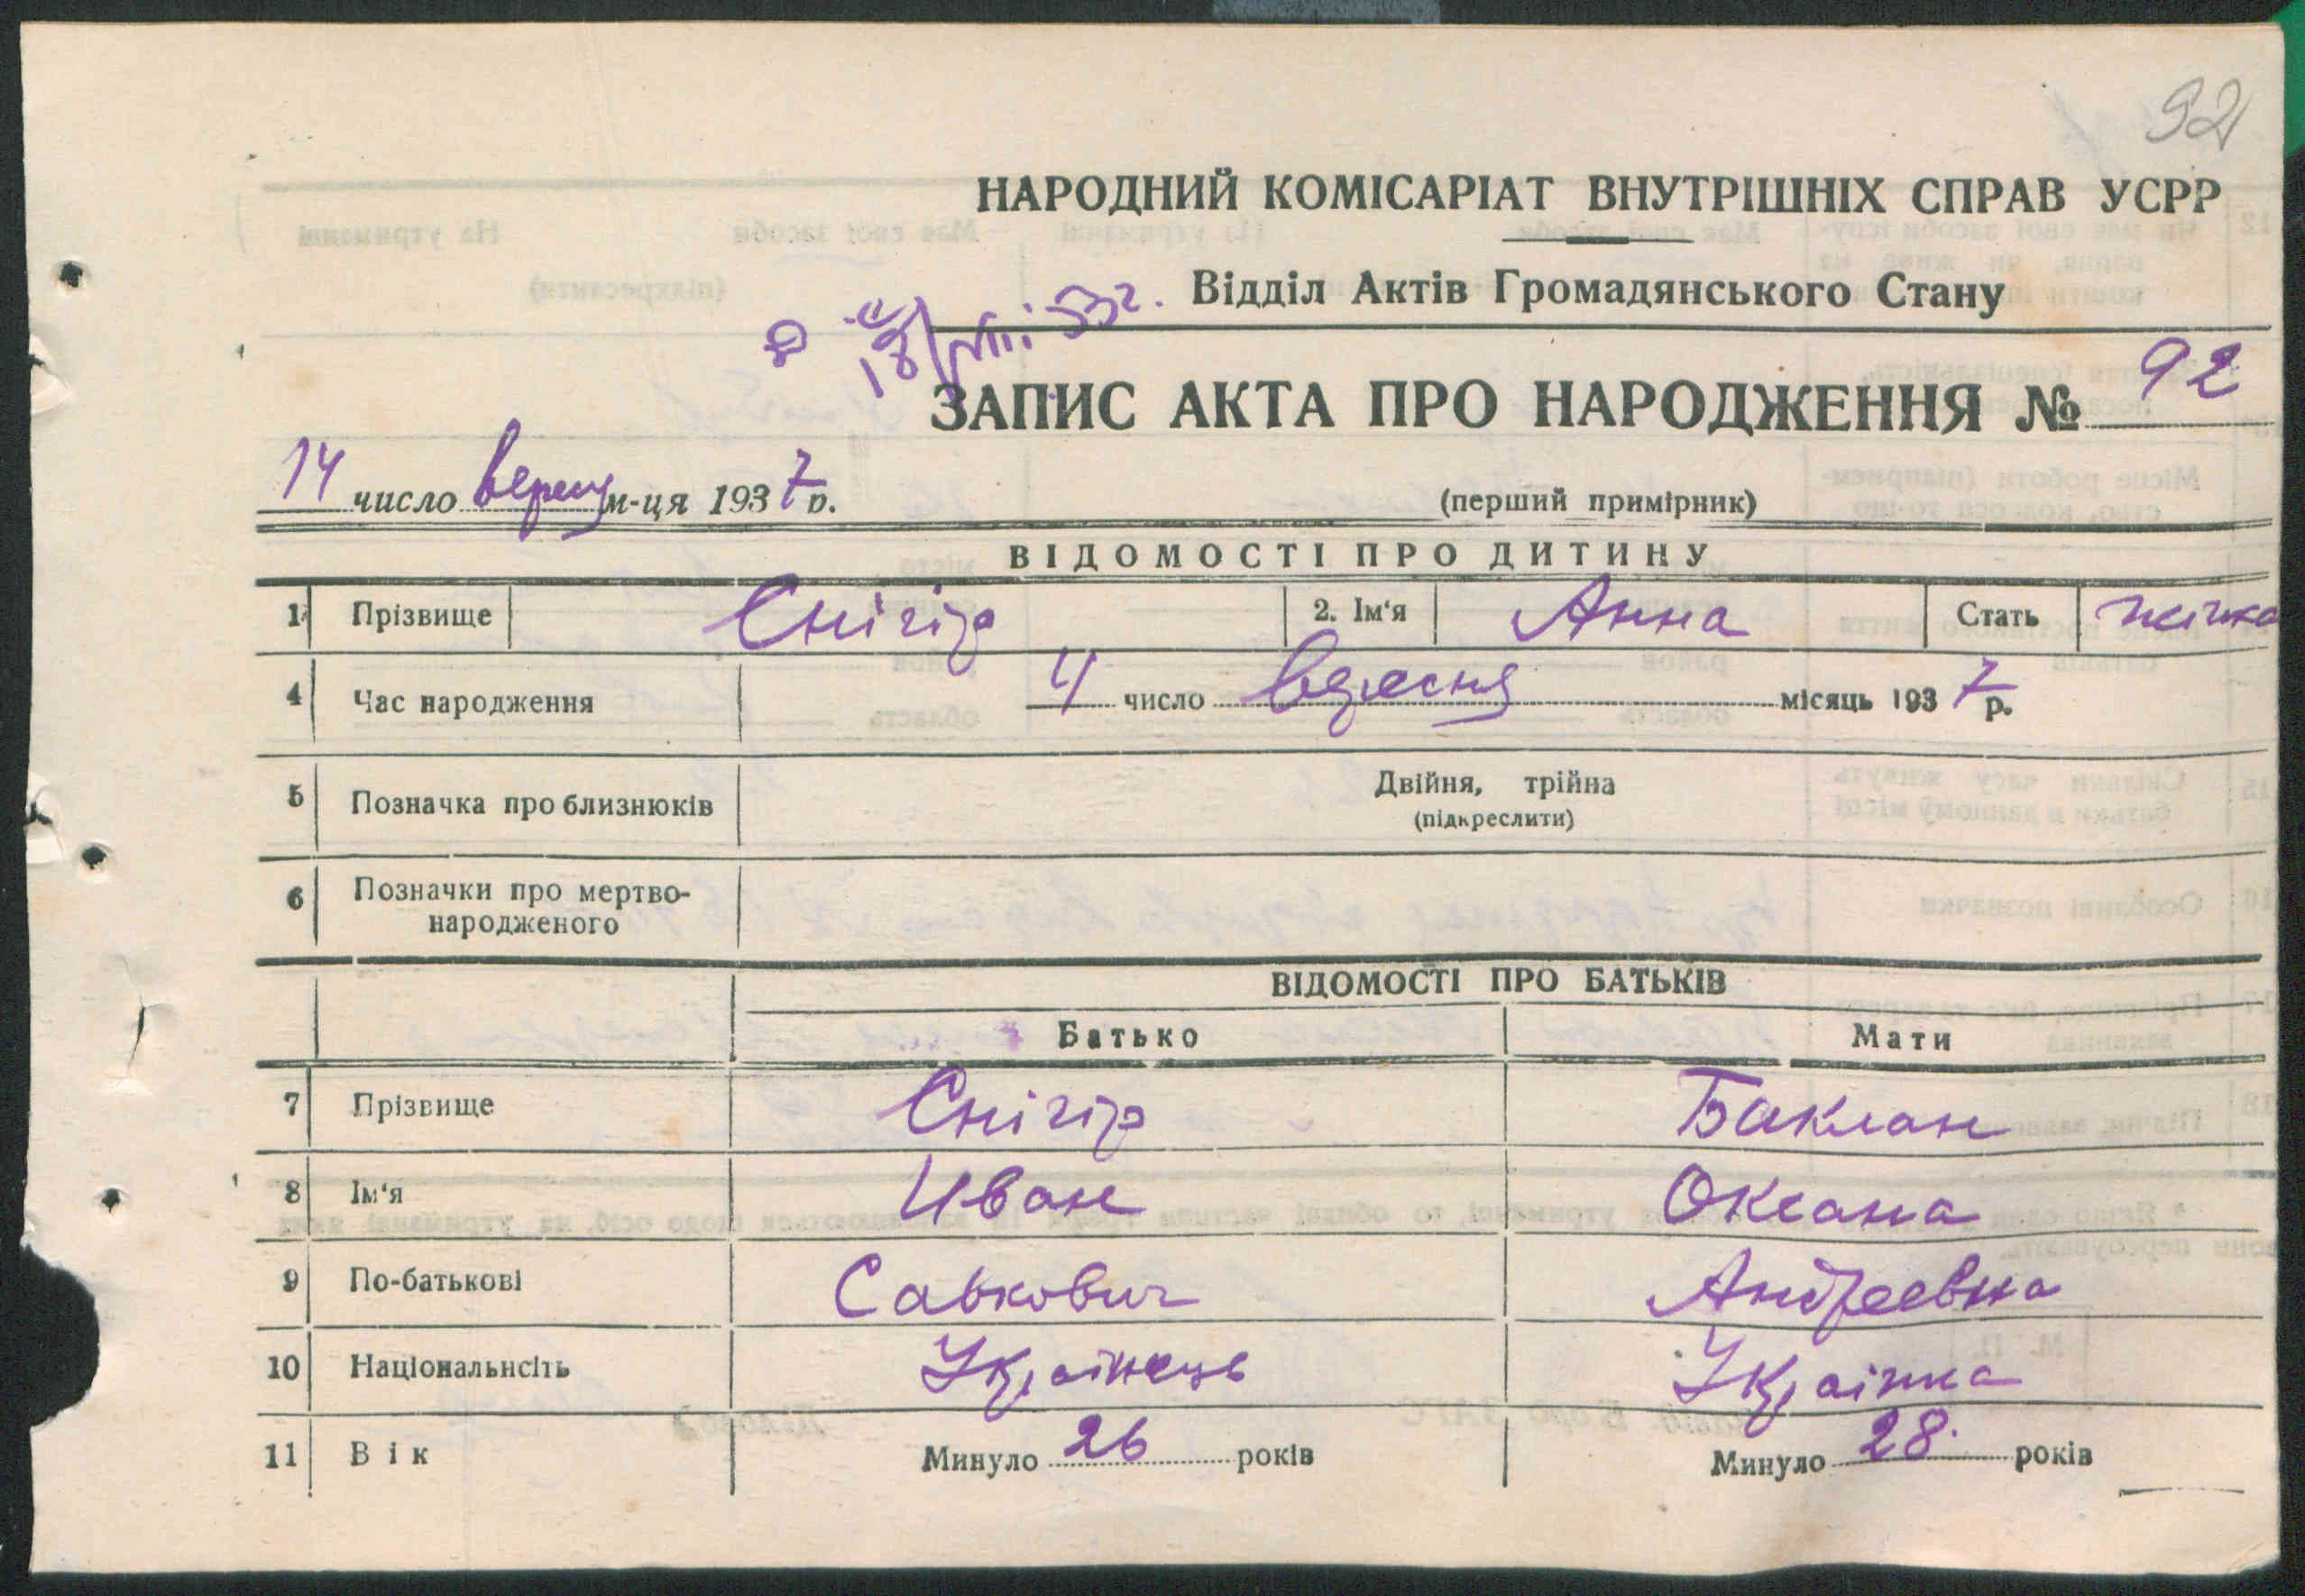 92
НАРОДНИЙ КОМІСАРІАТ ВНУТРІШНІХ СПРАВ УСРР
Відділ Актів Громадянського Стану
18/VIII 53г.
ЗАПИС АКТА ПРО НАРОДЖЕННЯ № 92
14 число вересн м-ця 1937 р.
(перший примірник)
ВІДОМОСТІ ПРО ДИТИНУ
1 Прізвище Снігір 2. Ім'я Анна Стать жінка
4 Час народження 4 число вересня місяць 1937 р.
5 Позначка про близнюків Двійня, трійна
(підкреслити)
6 Позначки про мертво-
народженого
ВІДОМОСТІ ПРО БАТЬКІВ
Батько Мати
7 Прізвище Снігір Баклан
8 Ім'я Иван Оксана
9 По-батькові Савкович Андреевна
10 Національнсіть Українець Українка
11 Вік Минуло 26 років Минуло 28 років